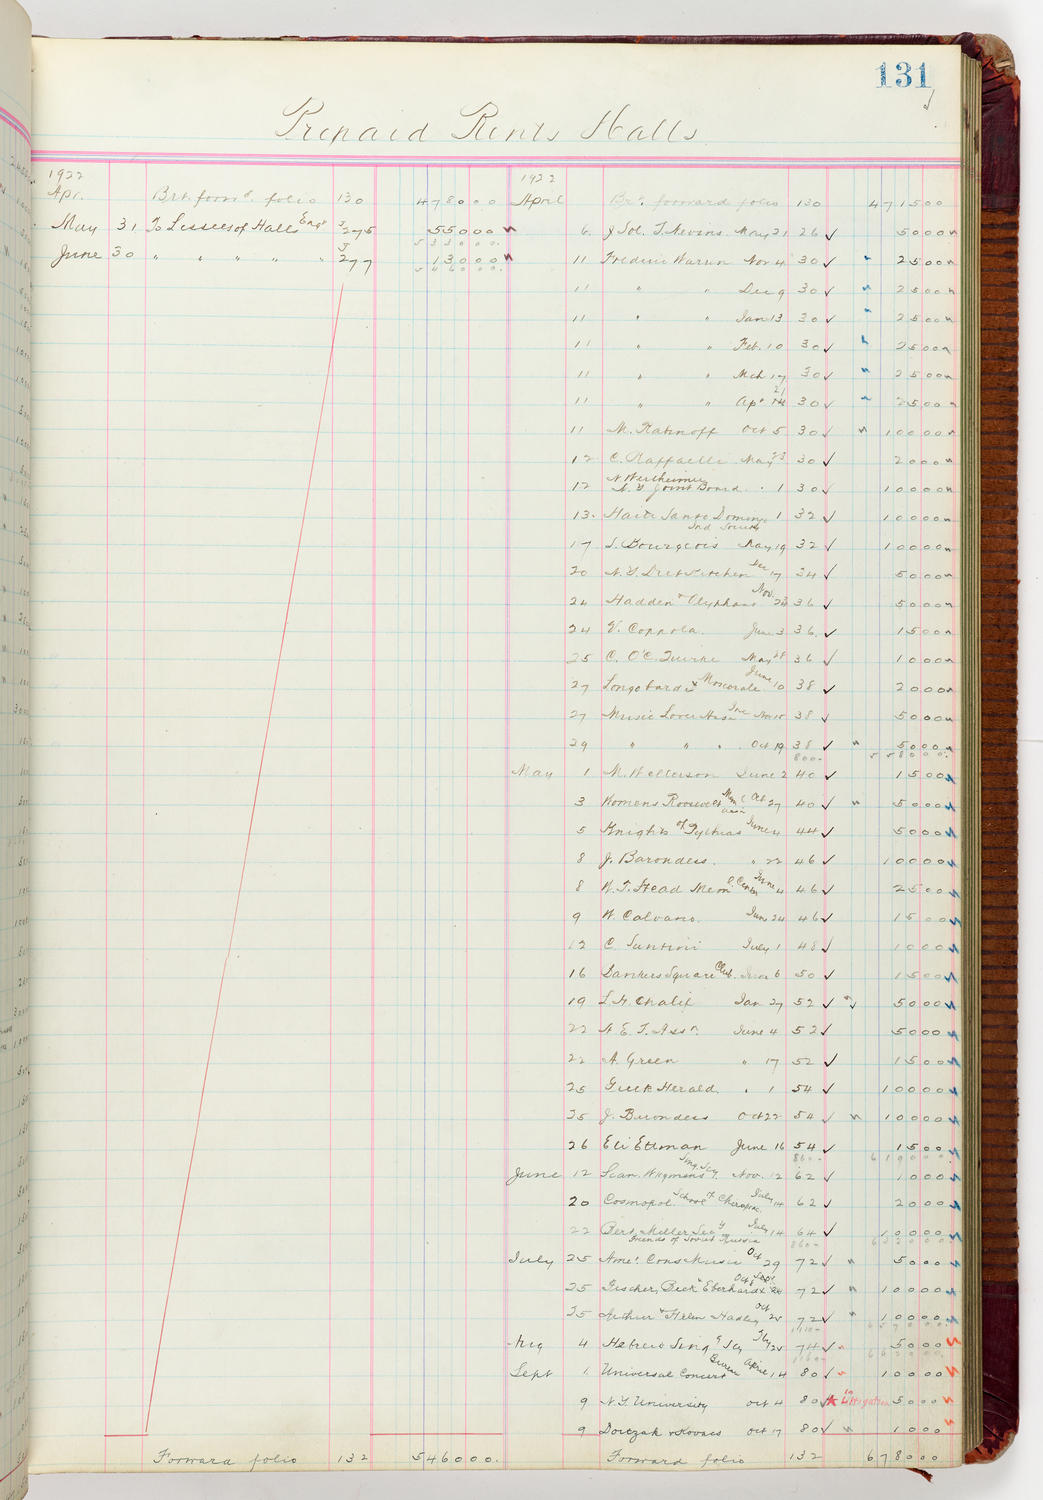 131
Prepaid Rents Halls
1922
Apr. Brt. forw'd folio 130 4780 00
May 31 To Lessees of Halls Eng' 3/275 550 00
5330 00.
June 30 " " " " " 3/277 130 00
5460 00.
Forward folio 132 5460 00.
1922
April Brt. forward folio 130 4715 00
6. J Sol. T. Nevins May 21 26 ✓ 50 00
11 Frederic Warren Nov 4 30 ✓ 25 00
11 " " Dec 9 30 ✓ 25 00
11 " " Jan 13 30 ✓ 25 00
11 " " Feb. 10 30 ✓ 25 00
11 " " Mch 17 30 ✓ 25 00
11 " " Ap' 21 30 ✓ 25 00
11 M. Ratnoff Oct 5 30 ✓ 100 00
12 C. Raffaelli May 23 30 ✓ 20 00
12 N Wertheimer N. Y Joint Board " 1 30 ✓ 100 00
13. Haiti Santo Domingo Ind Society 1 32 ✓ 100 00
17 S. Bourgeois May 19 32 ✓ 100 00
20 N. Y. Diet Kitchen Dec 17 34 ✓ 50 00
24 Hadden & Olyphant Nov. 23 36 ✓ 50 00
24 V. Coppola. June 3 36. ✓ 15 00
25 C. O'C. Quirke May 28 36 ✓ 10 00
27 Longobardi & Moscorale June 10 38 ✓ 20 00
27 Music Lover Assn Inc Nov 10 38 ✓ 50 00
29 " " " Oct 19 38 ✓ 50 00
800- 5580 00.
May 1 M. Wellerson June 2 40 ✓ 15 00
3 Womens Roosevelt Mem'l Assn Oct 27 40 ✓ 50 00
5 Knights of Pythias June 4 44 ✓ 50 00
8 J. Barondess. " 22 46 ✓ 100 00
8 W. T. Stead Mem'l Center June 4 46 ✓ 25 00
9 W. Calvano. June 24 46 ✓ 15 00
12 C. Santini July 1 48 ✓ 10 00
16 Dankers Square Club. June 6 50 ✓ 15 00
19 L. H. Chalif Jan 27 52 ✓ 50 00
22 H. E. T. Ass'n. June 4 52 ✓ 50 00
22 A. Green " 17 52 ✓ 15 00
25 Greek Herald. " 1 54 ✓ 100 00
25 J. Barondess Oct 22 54 ✓ 100 00
26 Eli Ettman June 16 54 ✓ 15 00
860- 6190 00.
June 12 Scan. Wkgmens Sing. Scy. Nov. 12 62 ✓ 10 00
20 Cosmopol. School of Chiroprac. July 14 62 ✓ 20 00
22 Bert. Miller Sec'y July 14 64 ✓ 100 00
Friends of Soviet Russia 860- 6320 00.
July 25 Ame'. Cons Music Oct 29 72 ✓ 50 00
25 Fischer, Beck & Eberhardt Oct 8 72 ✓ 100 00
25 Arthur & Helen Hadley Oct 25 72 ✓ 100 00
1110- 6570 00.
Aug 4 Hebrew Sing'g Scy 74 ✓ 50 00
1160- 6620 00.
Sept 1. Universal Concert Bureau April 14 80 ✓ 100 00
9 N. Y. University Oct 4 80 ✓ * In Litigation 50 00
9 Dorczak & Kovacs Oct 17 80 ✓ 10 00
Forward folio 132 6780 00